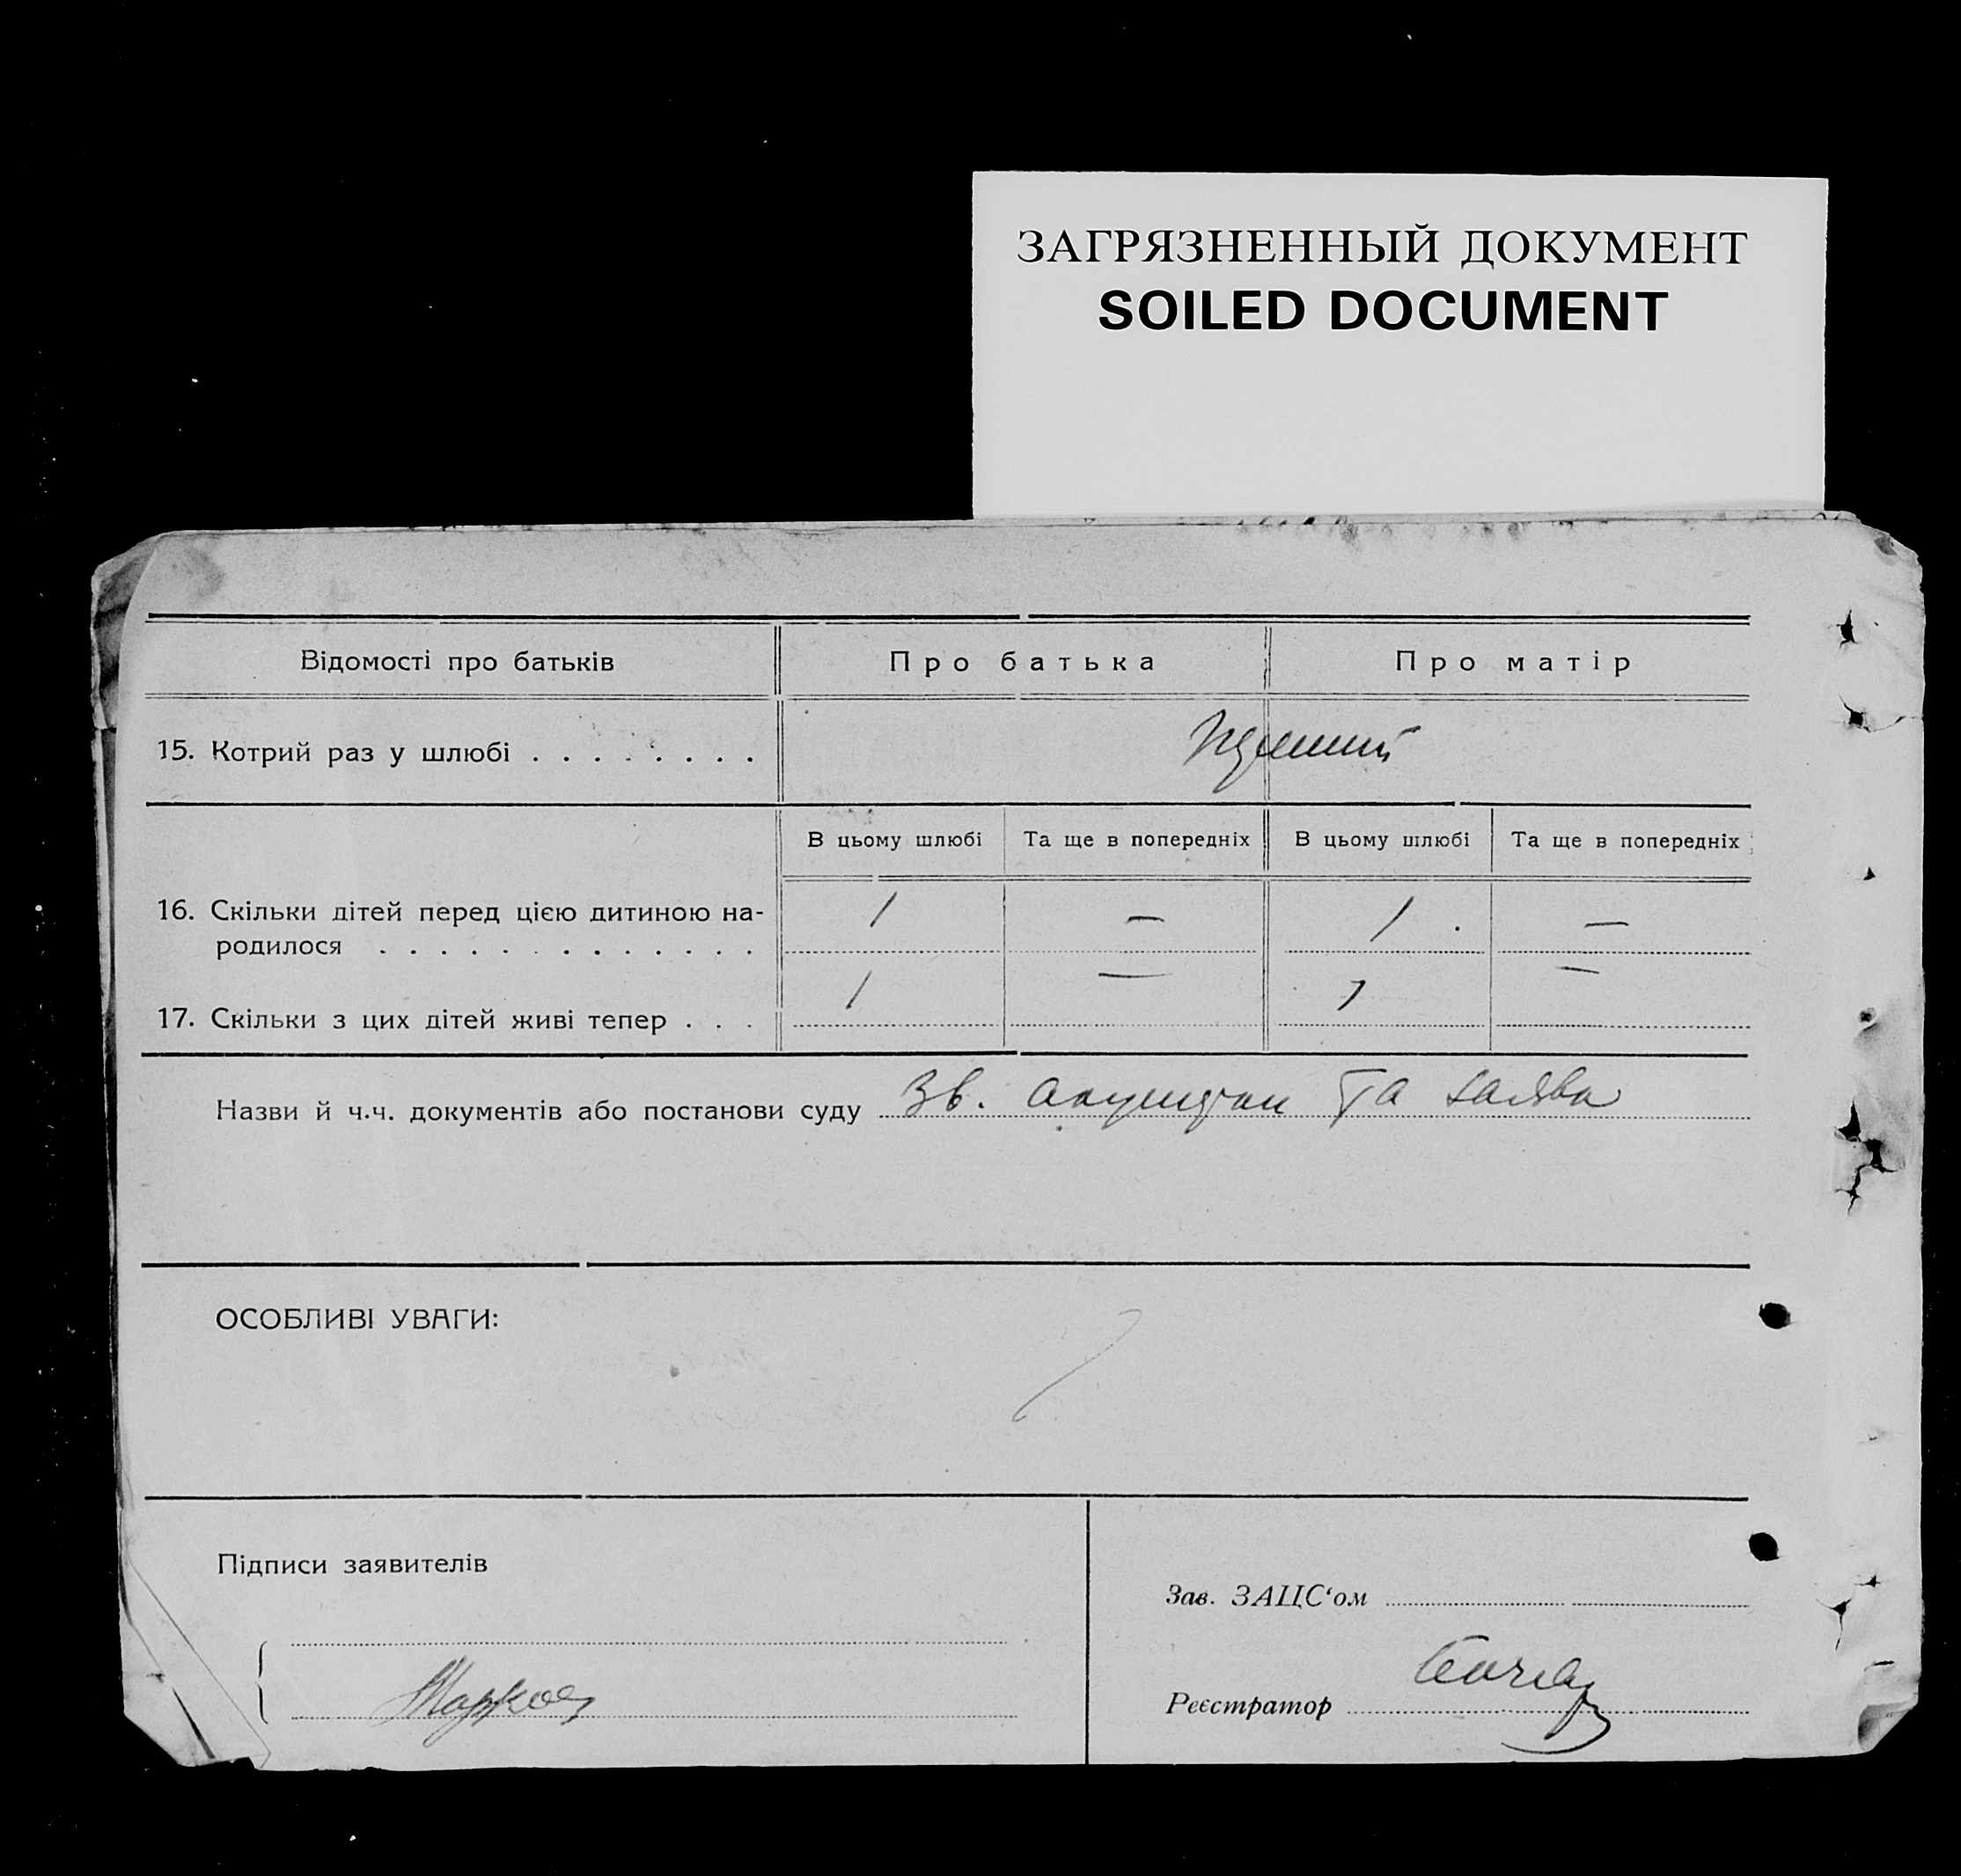 ЗАГРЯЗНЕННЫЙ ДОКУМЕНТ
SOILED DOCUMENT
Відомості про батьків Про батька Про матір
15. Котрий раз у шлюбі . . . . . . . .
В цьому шлюбі Та ще в попередніх В цьому шлюбі Та ще в попередніх
16. Скільки дітей перед цією дитиною на-
родилося . . . . . . . . . . . . . 1 — 1 —
17. Скільки з цих дітей живі тепер . . . 1 — 1 —
Назви й ч.ч. документів або постанови суду Зв. акушерки та заява
ОСОБЛИВІ УВАГИ:
Підписи заявителів
Зав. ЗАЦС‘ом
Реєстратор